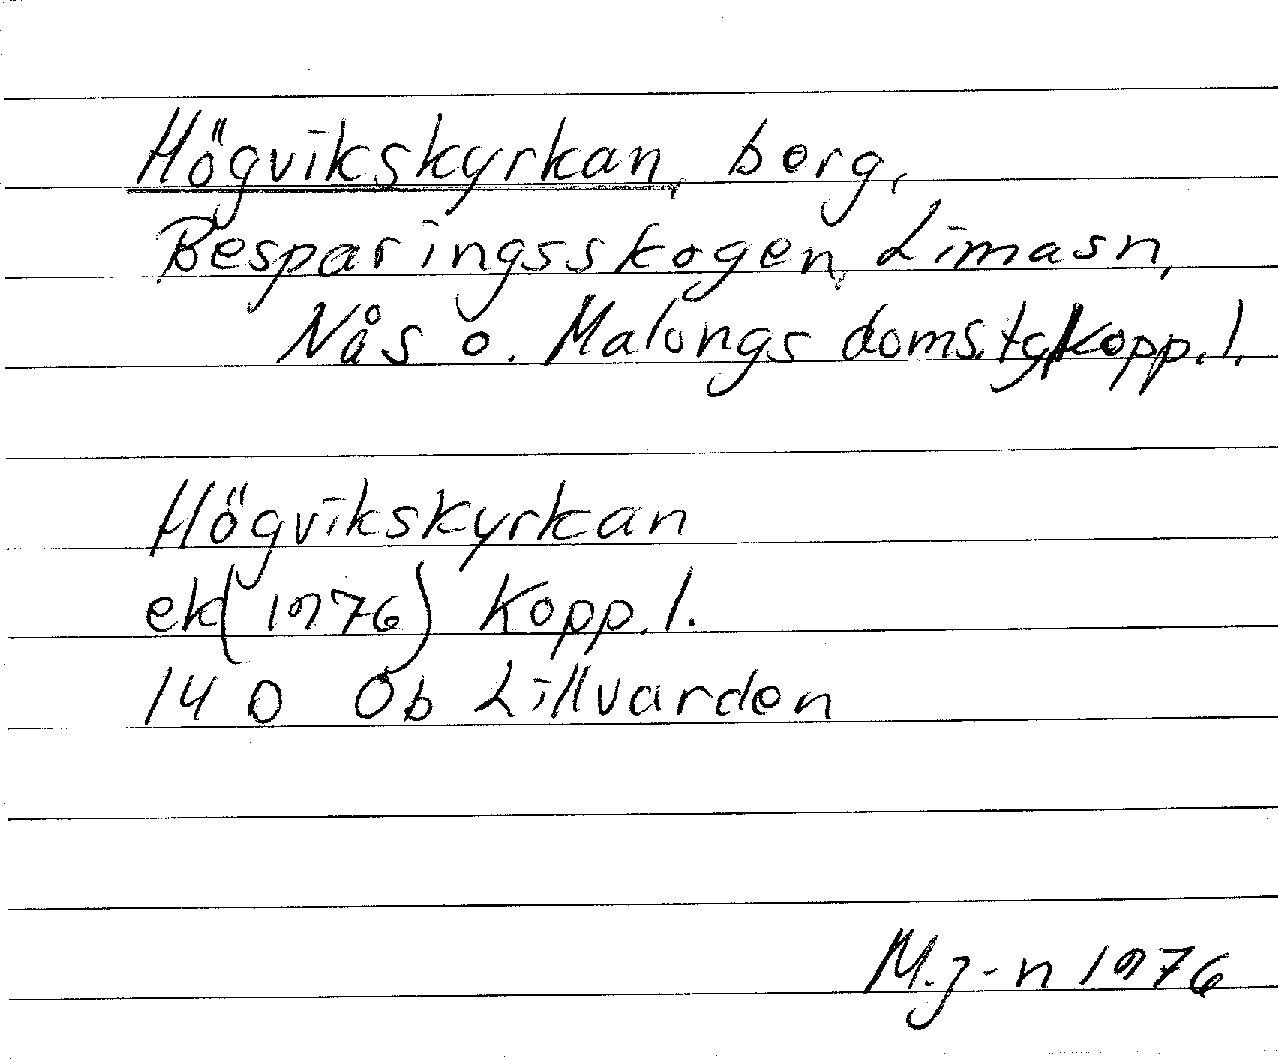 Högvikskyrkan, berg,
Besparingsskogen, Limasn,
Nås o. Malungs doms.tg, Kopp.l.
Högvikskyrkan
ek (1976) Kopp.l.
14 D Öb Lillvarden
M.j-n 1976